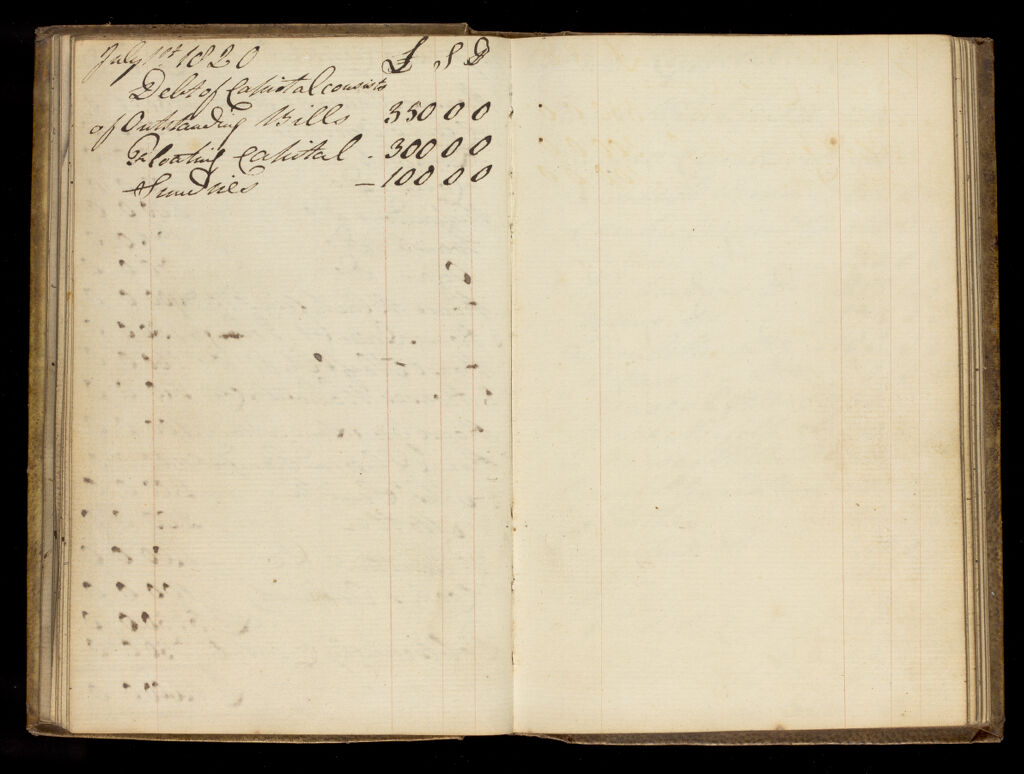 July 1st 1820 £ S D
Debt of Capital consists
of Outstanding Bills 350 0 0
Floating Capital - 300 0 0
Sundries - 100 0 0